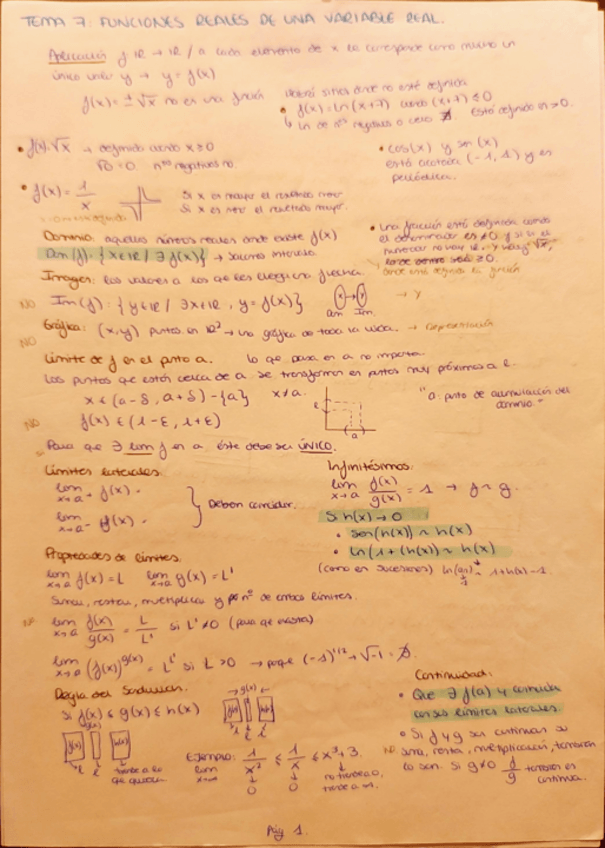 TEMA 7: FUNCIONES REALES DE UNA VARIABLE REAL.
Aplicación f: IR → IR / a cada elemento de x le corresponde como mucho un
único valor y → y = f(x)
f(x) = ± √x no es una función
Habrá sitios donde no esté definida
• f(x) = ln(x+7) cuando (x+7) ≤ 0
↳ ln de nºs negativos o cero ∄ Está definido en > 0.
• f(x) = √x → definida cuando x ≥ 0
√0 = 0 nºs negativos no.
• cos(x) y sen(x)
está acotada (-1, 1) y es
periódica.
• f(x) = 1/x
Si x es mayor el resultado menor
Si x es menor el resultado mayor.
Dominio: aquellos números reales donde existe f(x)
Dom(f): {x ∈ IR / ∃ f(x)} → Solemos
• Una función está definida cuando
el denominador es ≠ 0 y si en el
numerador no hay
donde dentro sea ≥ 0.
donde está definida la función
Imagen: los valores a los que les llega una flecha.
NO Im(f): {y ∈ IR / ∃x ∈ IR, y = f(x)}
Dom Im.
→ y
NO Gráfica: (x,y) puntos en IR² → una gráfica de toda la vida. → representación
Límite de f en el punto a. Lo que pasa en a no importa.
Los puntos que están cerca de a se transforman en puntos muy próximos a l.
x ∈ (a-δ, a+δ) - {a} x ≠ a.
l
(a)
"a: punto de acumulación del
dominio."
NO f(x) ∈ (l-ε, l+ε)
Para que ∃ lim f en a éste debe ser ÚNICO.
Límites laterales.
lim x→a+ f(x) =
lim x→a- f(x) =
} Deben coincidir.
Infinitésimos
lim x→a f(x)/g(x) = 1 → f ~ g.
Si h(x) → 0
• sen(h(x)) ~ h(x)
• ln(1+(h(x)) ~ h(x)
(como en sucesiones) ln(an) ~ 1+h(x)-1
↓
1
Propiedades de límites.
lim x→a f(x) = L lim x→a g(x) = L'
Sumar, restar, multiplicar y por nº de ambos límites.
lim x→a f(x)/g(x) = L/L' si L' ≠ 0 (para que exista)
lim x→a (f(x))^g(x) = L^L' si L > 0 → porque (-1)^1/2 → √-1 = ∄.
Regla del Sandwich.
Si f(x) ≤ g(x) ≤ h(x)
f(x) g(x) h(x)
l l
tiende a lo
que quiera
→ g(x) ←
f(x) h(x)
l l l
Ejemplo: 1/x² ≤ 1/x ≤ x³+3.
lim x→∞
↓ ↓ ↓
0 0
no tiende a 0,
tiende a ∞.
Continuidad:
• Que ∃ f(a) y coincida
con sus límites laterales.
• Si f y g son continuas su
NO suma, resta, multiplicación, también
lo son. Si g ≠ 0 f/g también es
continua.
Pág 1.